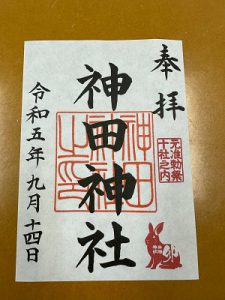 奉拝
元准勅祭
十社之内
神田神社
神田
神社
之印
令和五年九月十四日